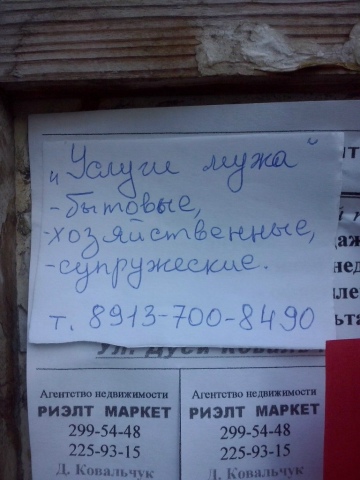 „Услуги мужа"
-бытовые,
-хозяйственные,
-супружеские.
т. 8913-700-8490
Ул. Дуси Коваль
Агентство недвижимости
РИЭЛТ МАРКЕТ
299-54-48
225-93-15
Д. Ковальчук
Агентство недвижимости
РИЭЛТ МАРКЕТ
299-54-48
225-93-15
Д. Ковальчук